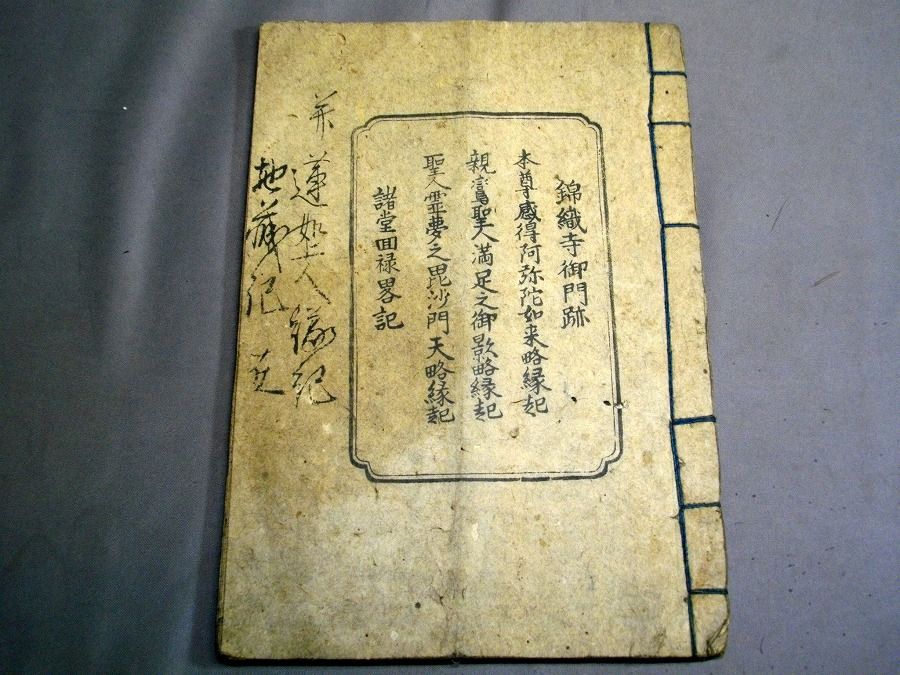 錦織寺御門跡
本尊感得阿弥陀如来略縁起
親鸞聖人満足之御影略縁起
聖人霊夢之毘沙門天略縁起
諸堂回禄畧記
并蓮如上人縁記
地蔵記